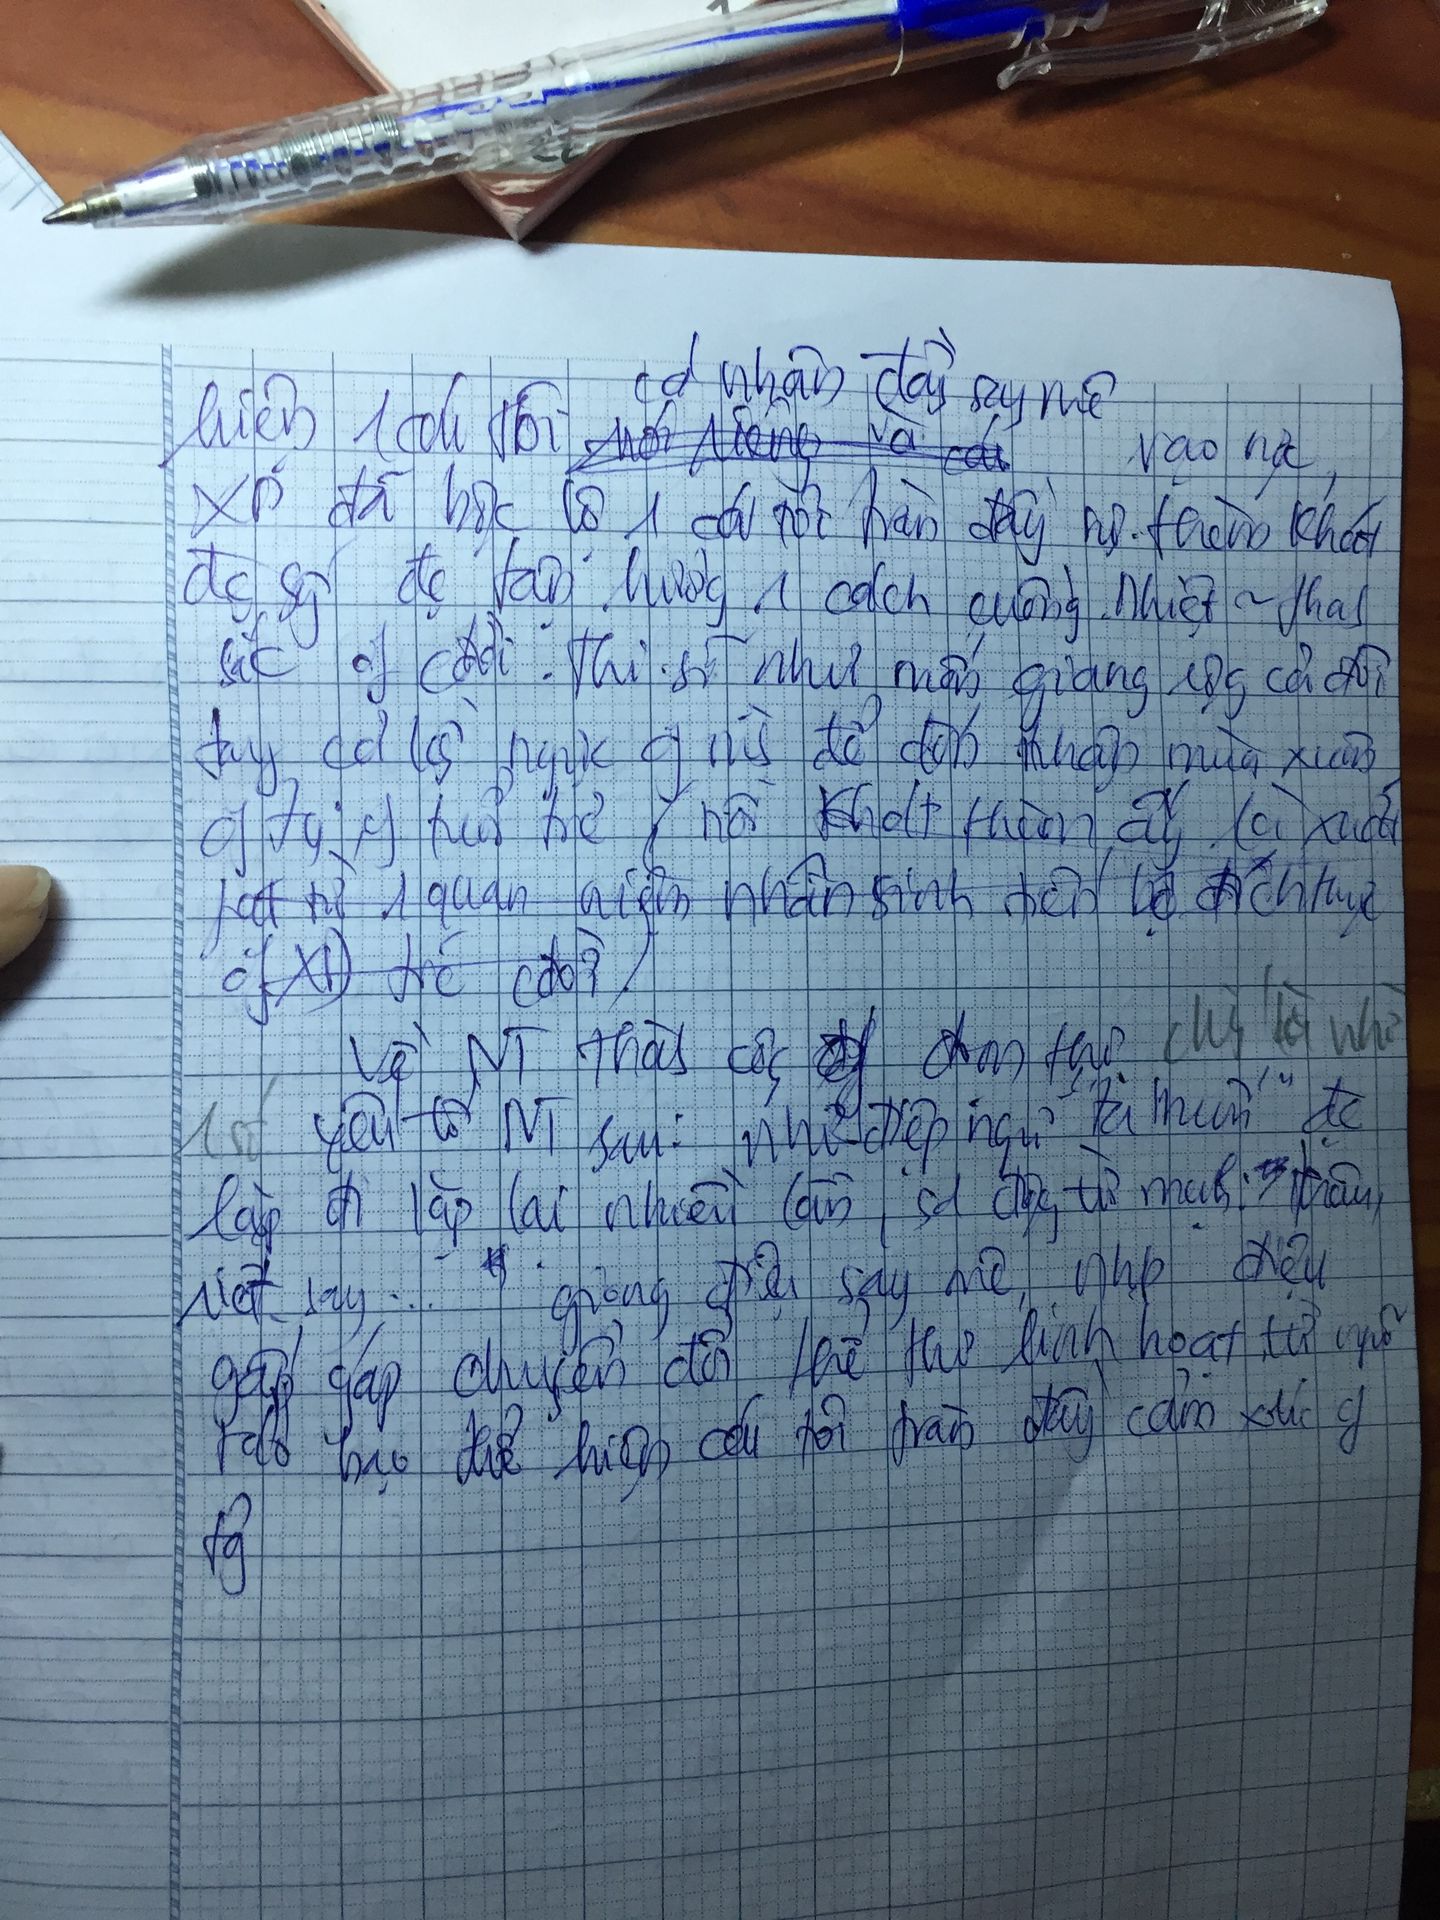 cá nhân đầy say mê
hiện 1 cái tôi nói riêng và cái vào ng,
XD đã bộc lộ 1 cái tôi tràn đầy n~ thèm khát
đc sg đc tận hưởng 1 cách cuồng nhiệt ~ thah
sắc of cđời. Thi sĩ như muốn giang rộg cả đôi
tay cả lg ngực of mìh để đón nhận mùa xuân
of ty, of tuổi trẻ, nỗi khát thèm ấy là xuất
phát từ 1 quan niệm nhân sinh tiến bộ tích cực
of XD trc cđời
Về NT thàh côg of đoạn thơ chíh là nhờ
1 số yếu tố NT sau: như điệp ngữ "ta muốn" đc
lặp đi lặp lại nhiều lần, sd độg từ mạnh: "thâu,
riết, say..." giọng điệu say mê, nhịp điệu
gấp gáp chuyển đổi thể thơ linh hoạt, từ ngữ
táo bạo thể hiện cái tôi tràn đầy cảm xúc of
tg